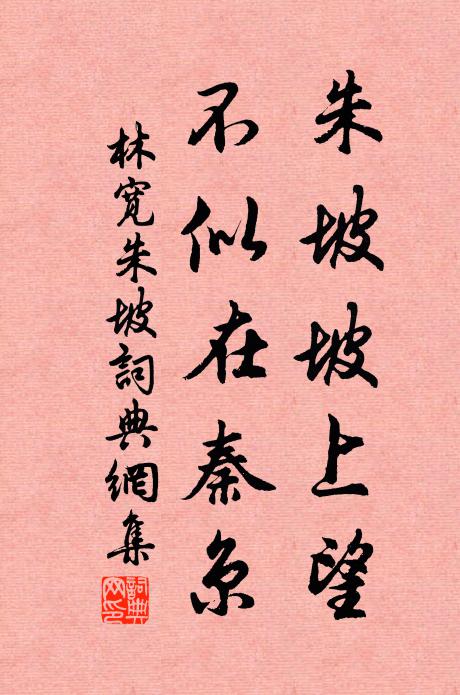 朱坡坡上望
不似在秦京
林寬朱坡詞典網集
詞典網印